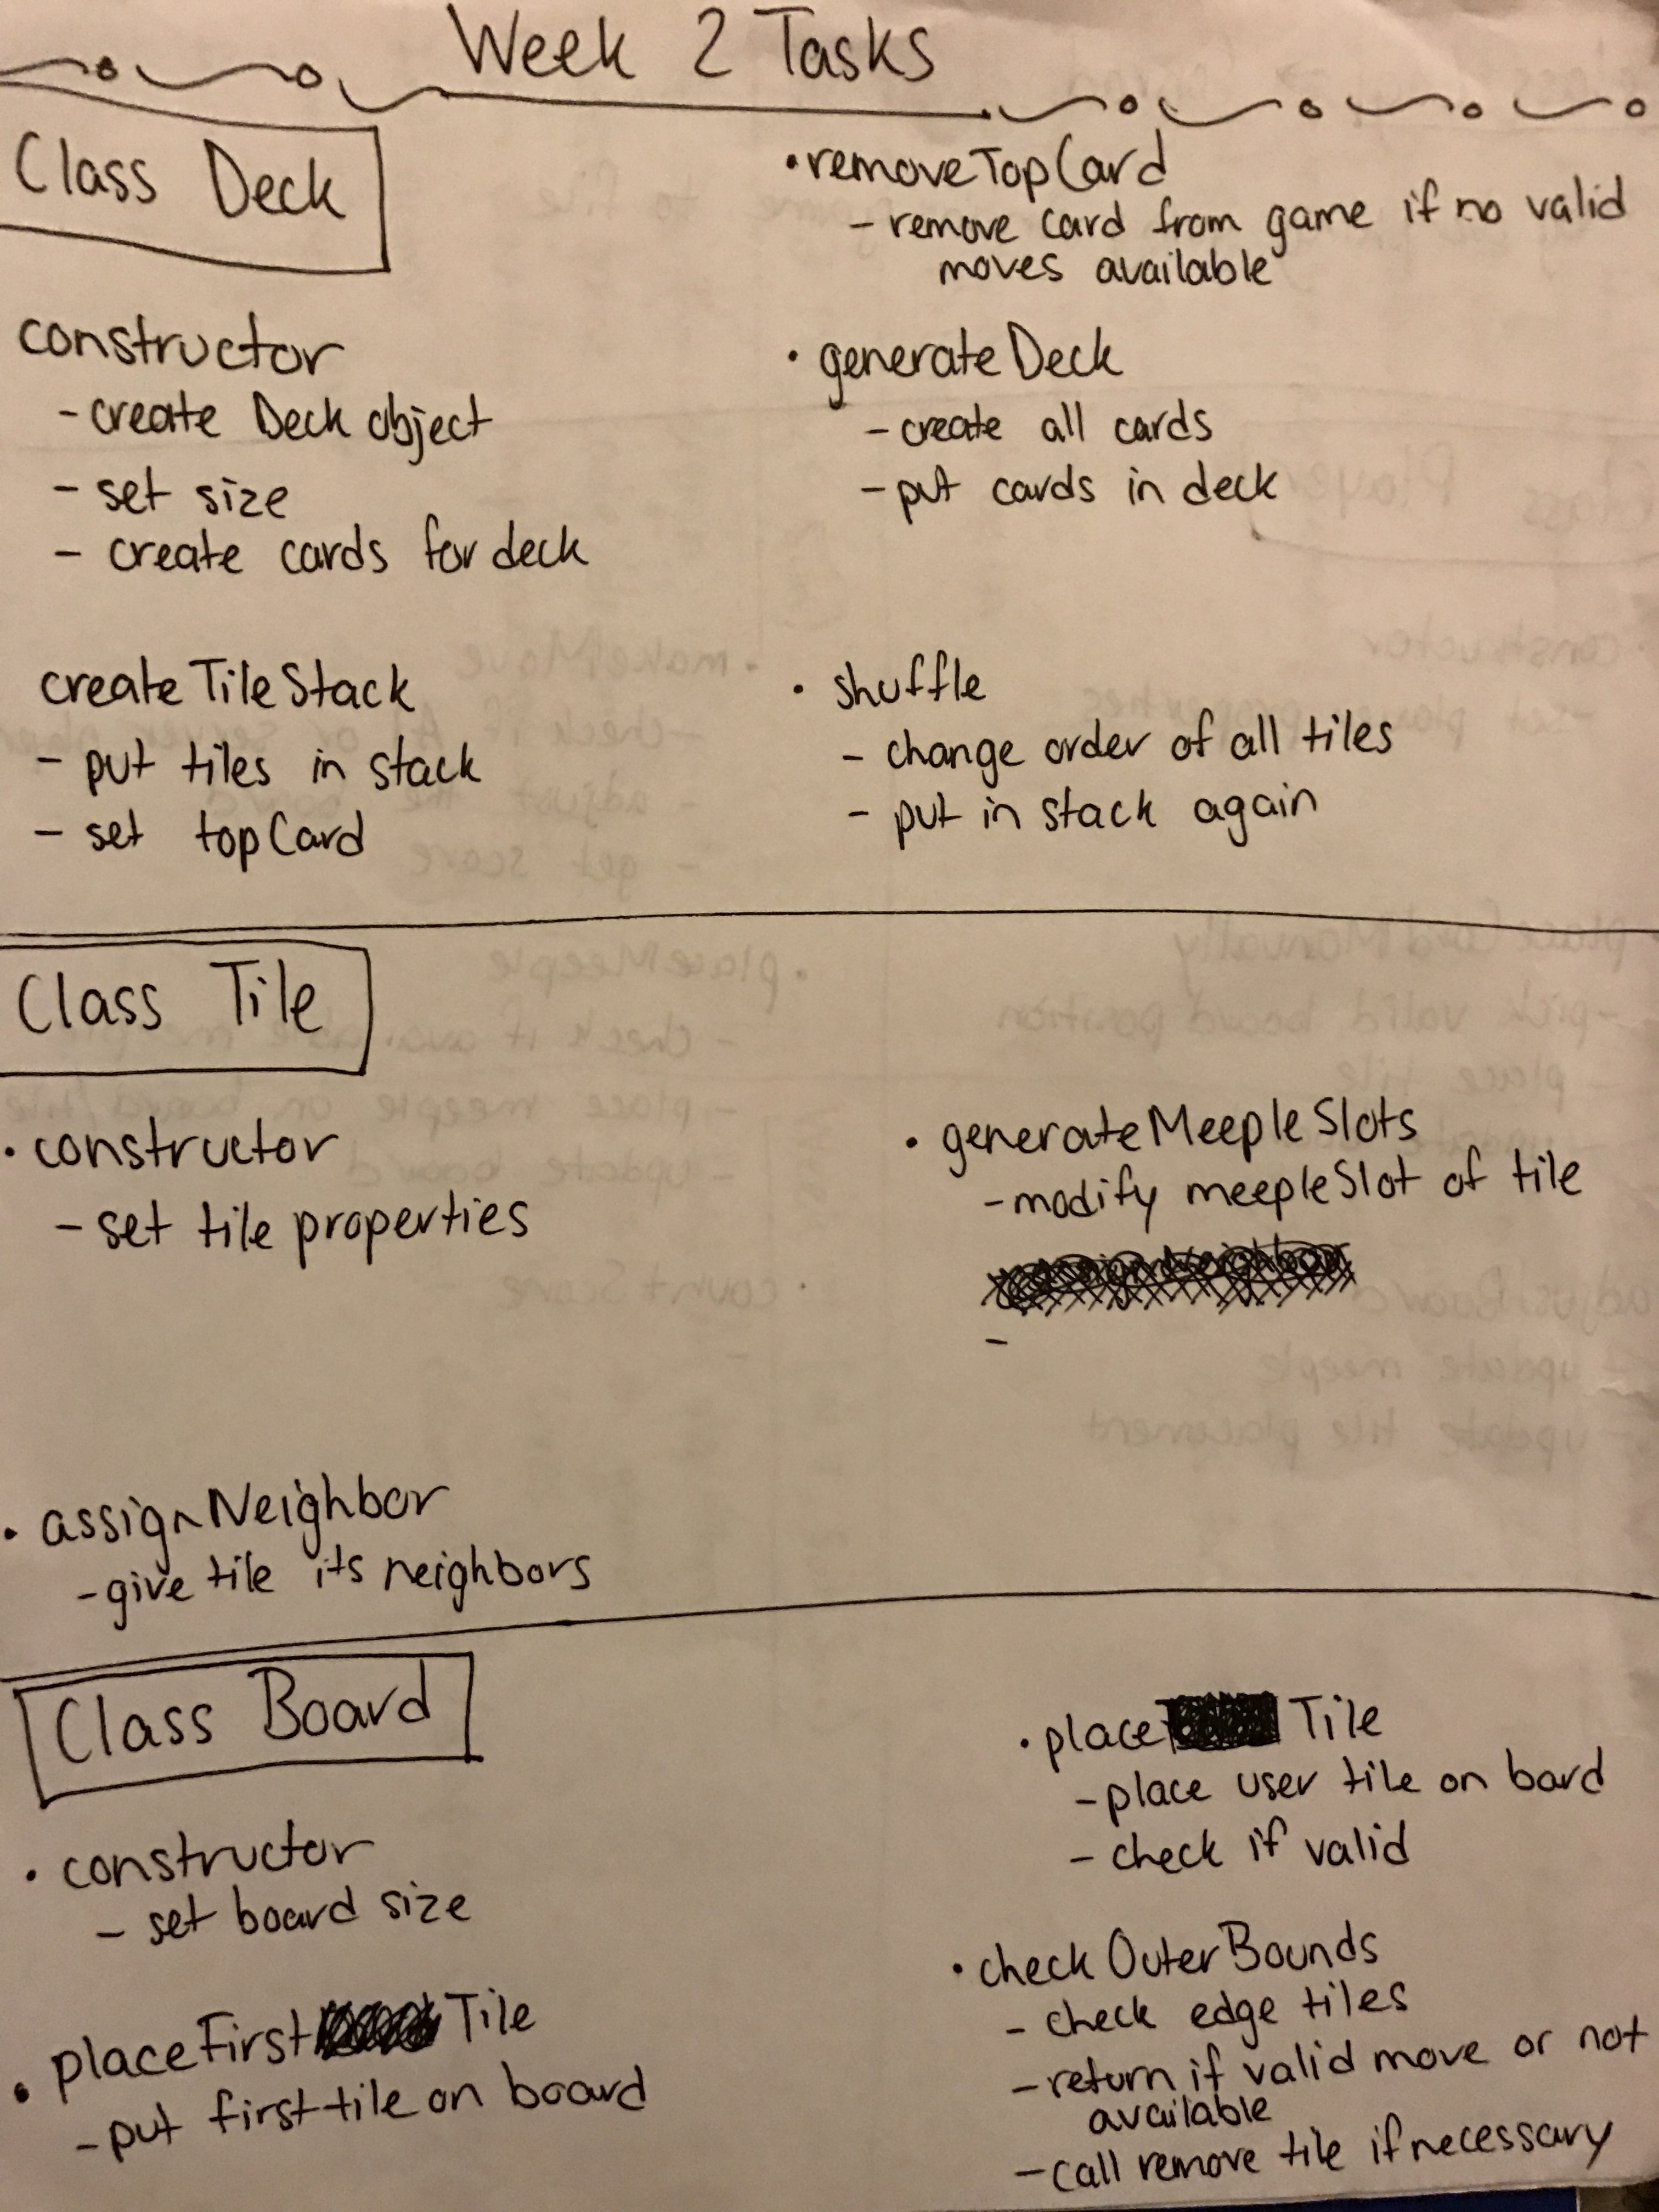 Week 2 Tasks
Class Deck
constructor
- create Deck object
- set size
- create cards for deck
createTileStack
- put tiles in stack
- set topCard
• removeTopCard
- remove card from game if no valid
moves available
• generateDeck
- create all cards
- put cards in deck
• shuffle
- change order of all tiles
- put in stack again
Class Tile
• constructor
- set tile properties
• assignNeighbor
- give tile its neighbors
• generateMeepleSlots
- modify meepleSlot of tile
-
Class Board
• constructor
- set board size
• placeFirst Tile
- put first tile on board
• place Tile
- place user tile on bard
- check if valid
• checkOuterBounds
- check edge tiles
- return if valid move or not
available
- call remove tile if necessary